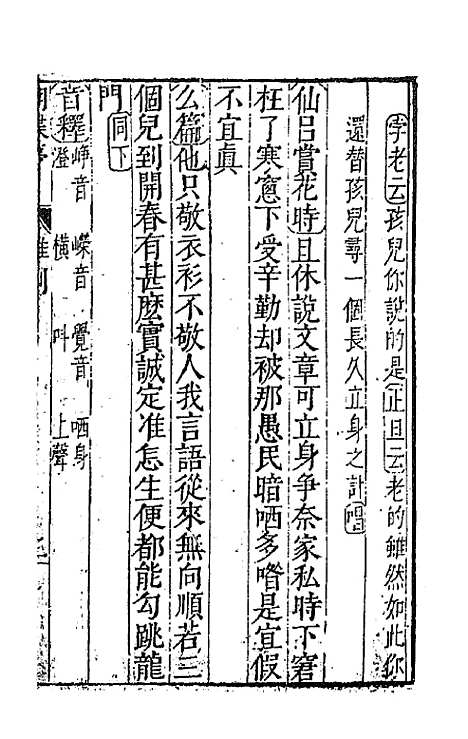 孛老云孩兒你說的是正旦云老的雖然如此你
還替孩兒尋一個長久立身之計唱
仙呂賞花時且休說文章可立身爭奈家私時下窘
枉了寒窻下受辛勤却被那愚民暗哂多喒是宜假
不宜眞
么篇他只敬衣衫不敬人我言語從來無向順若三
個兒到開春有甚麽實誠定准怎生便都能勾跳龍
門同下
音釋 崢音澄 嶸音橫 覺音叫 哂身上聲